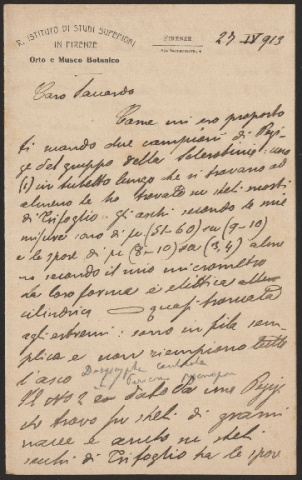 R. ISTITUTO DI STUDI SUPERIORI
IN FIRENZE
Orto e Museo Botanico
FIRENZE
27 IV 913
Caro Saccardo
Come mi ero proposto
ti mando due campioni di Pezi-
ze del gruppo delle Sclerotinie: uno
(1) in tubetto lungo che si trovano ad
almeno le ho trovate su steli morti
di Trifoglio. Gli aschi secondo le mie
misure sono di μ (51-60) su (9-10)
e le spore di μ (8-10) su (3,4) alme
no secondo il mio micrometro
La loro forma è elittica allun
cilindrica quasi troncata
agli estremi: sono in fila sem-
plice e non riempiono tutto
l'asco
Il N° 2 è dato da una Pezize
che trovo su steli di grami
nacee e anche su steli
secchi di Trifoglio ha le spore